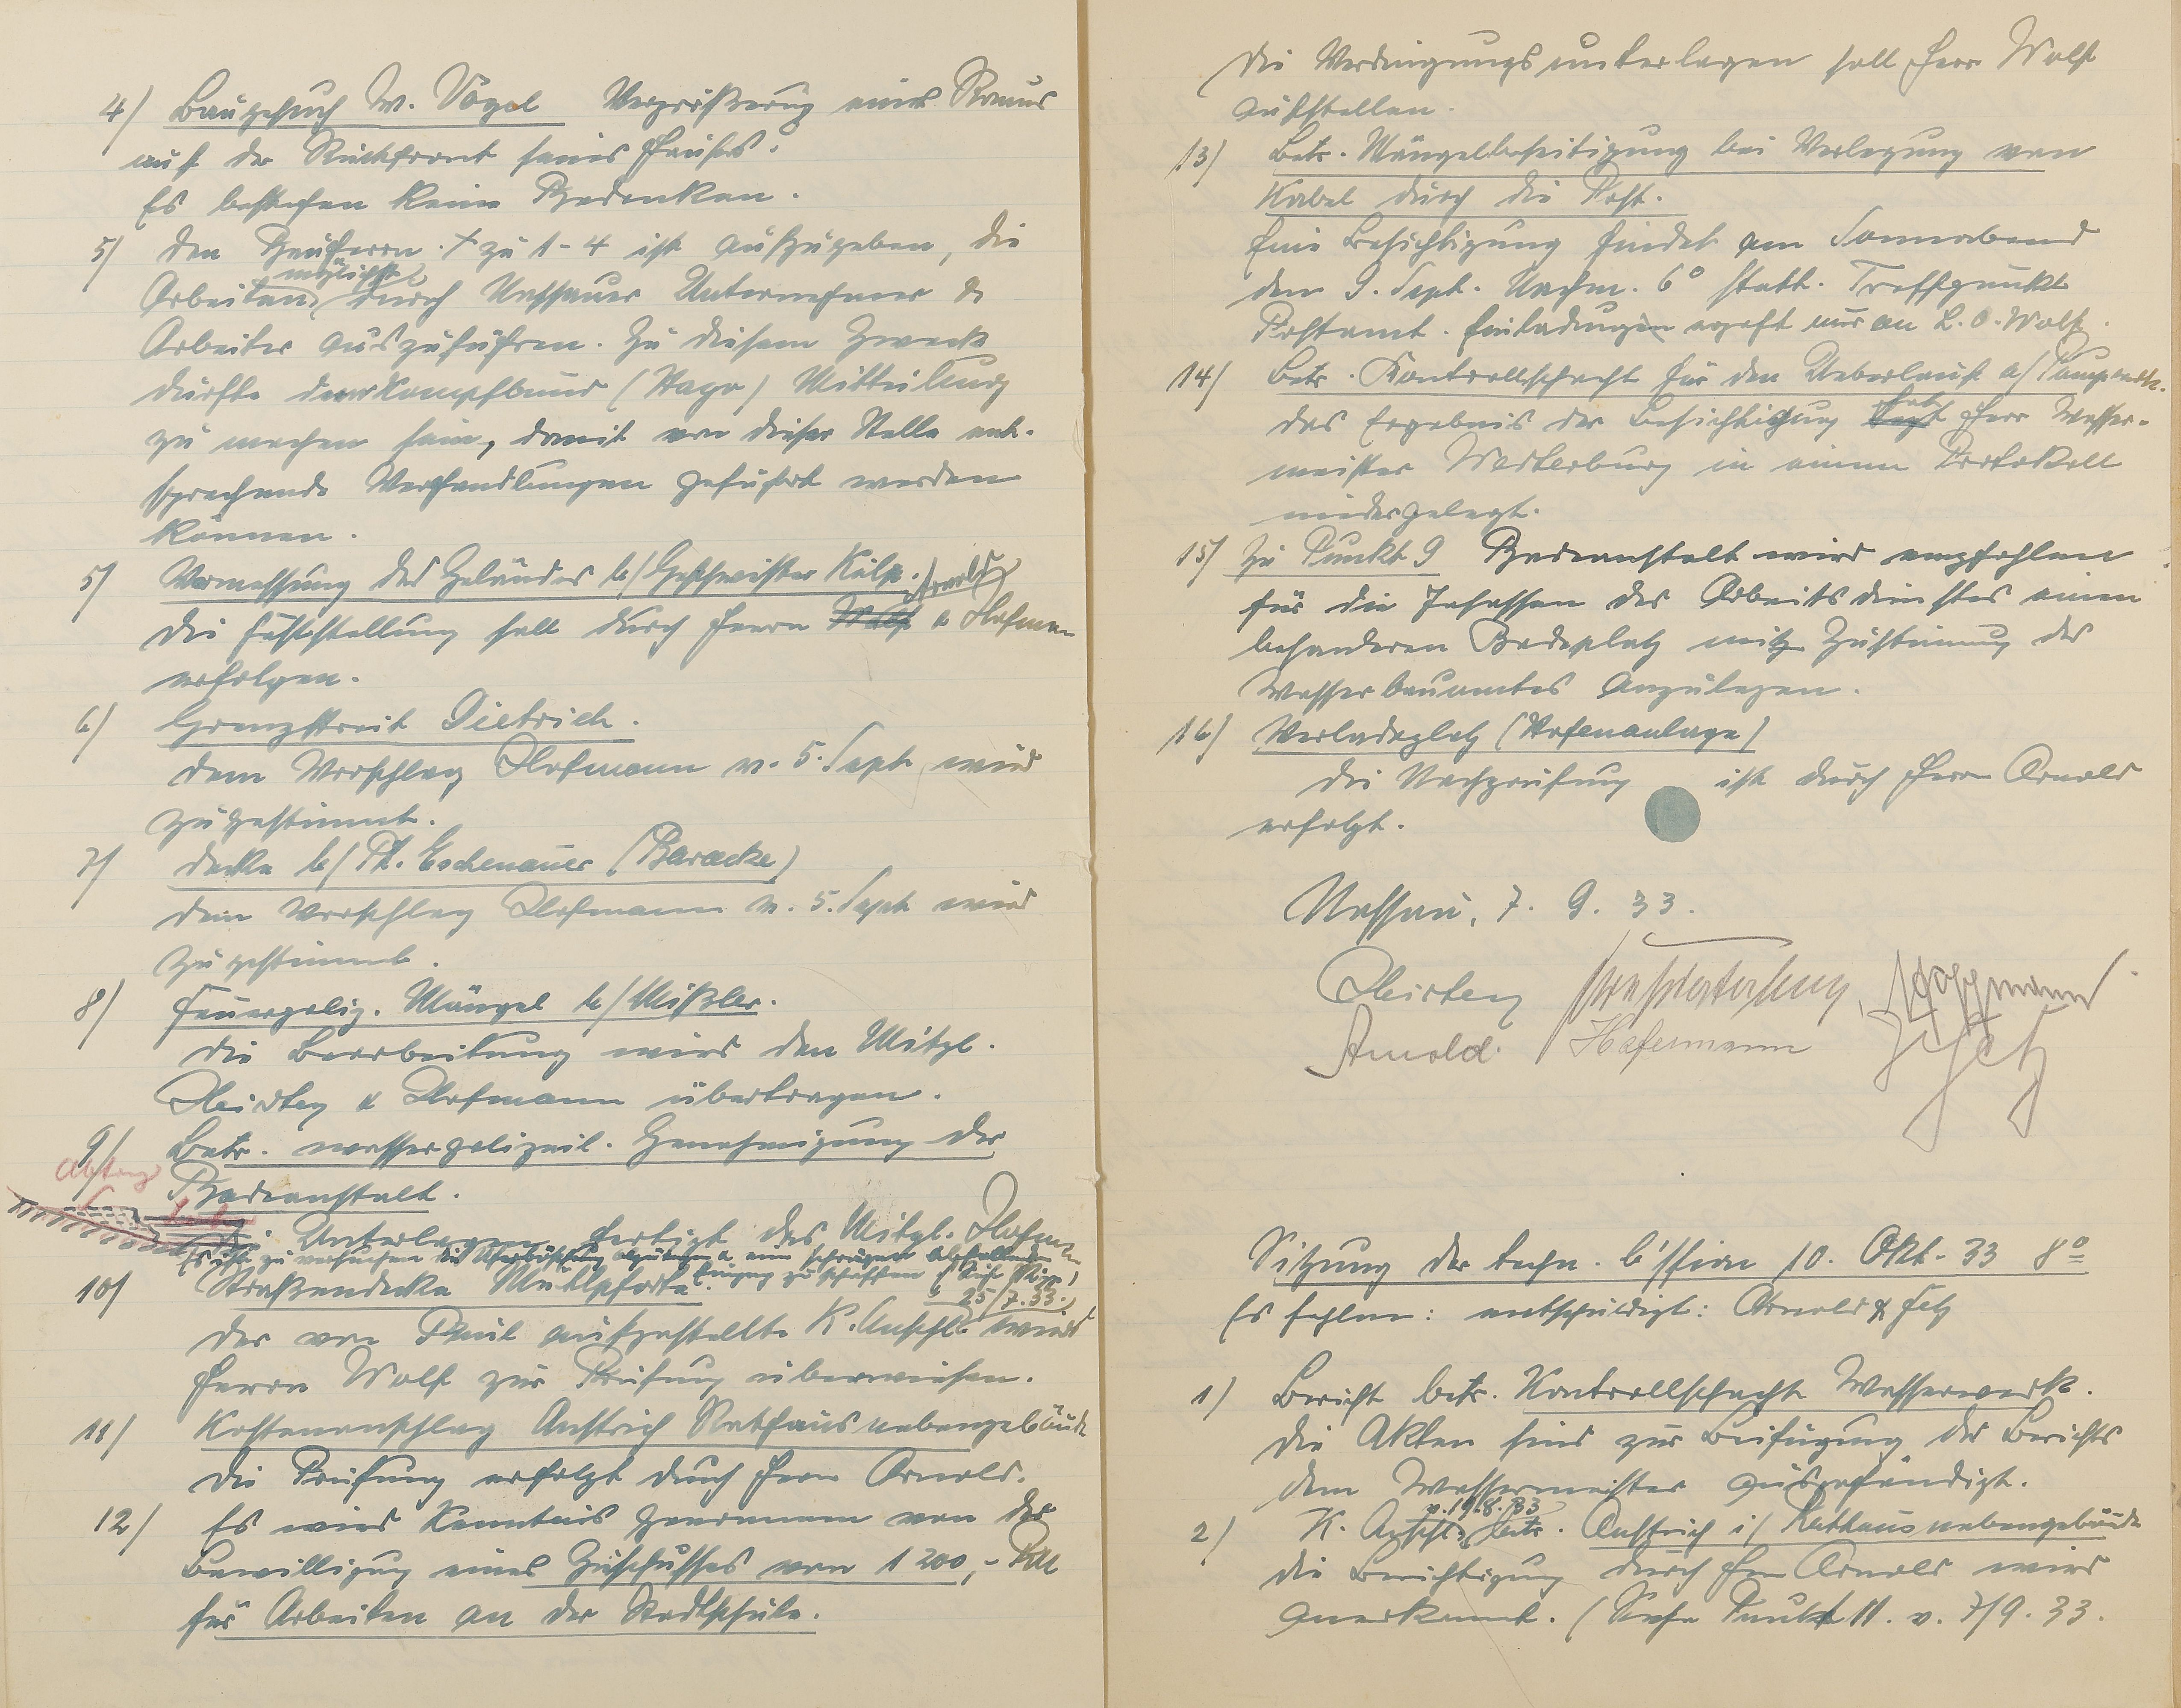 4) Baugesuch W. Vogel Vergrößerung eines Raums
auf der Rückfront seines Hauses.
Es bestehen keine Bedenken.
5) Den Bauherrn zu 1-4 ist aufzugeben, die
möglichst
Arbeiten durch Nassauer Unternehmer &
Arbeiter auszuführen. Zu diesem Zweck
dürfte dem Kampfbund (Hago) Mitteilung
zu machen sein, damit von dieser Stelle ent-
sprechende Verhandlungen geführt werden
können.
5) Vermessung des Geländes b/ Geschwister Külp.
Arnold
Die Feststellung soll durch Herrn Wolf & Hofmann
erfolgen.
6) Grenzstreit Dietrich.
Dem Vorschlag Hofmann v. 5. Sept. wird
zugestimmt.
7) Decke b/ Ph. Eschenauer (Baracke)
Dem Vorschlag Hofmann v. 5. Sept wird
zugestimmt.
8) Feuerpoliz. Mängel b/ Mißler.
Die Bearbeitung wird den Mitgl.
& Hofmann übertragen.
9) Betr. wasserpolizeil. Genehmigung der
Badeanstalt.
Unterlagen fertigt das Mitgl. Hofmann
Es ist zu versuchen die & einen schrägen
Eingang zu schaffen
25/7.33.)
10) Straßendecke Mühlpforte.
Der von Paul aufgestellte K. Anschl. wird
Herrn Wolf zur Prüfung überwiesen.
11) Kostenanschlag Anstrich Rathausnebengebäude
Die Prüfung erfolgt durch Herrn Arnold.
12) Es wird Kenntnis genommen von der
Bewilligung eines Zuschusses von 1200,- RM
für Arbeiten an der Stadtschule.
Die Verdingungsunterlagen soll Herr Wolf
aufstellen.
13) Betr. Mängelbeseitigung bei Verlegung von
Kabel durch die Post.
Eine Besichtigung findet am Sonnabend
den 9. Sept. Nachm. 6° statt. Treffpunkt
Postamt. Einladungen ergeht nur an L. O. Wolf.
14) Betr. Kontrollschacht für den Ueberlauf a/ Pumpwerk.
hat
Das Ergebnis der Besichtigung legt Herr Wasser-
meister Westerburg in einem Protokoll
niedergelegt.
15) Zu Punkt 9 Badeanstalt wird empfohlen
für die Insassen des Arbeitsdienstes einen
besonderen Badeplatz mit Zustimmung des
Wasserbauamtes anzulegen.
16) Verladeplatz (Hafenanlage)
Die Nachprüfung ist durch Herrn Arnold
erfolgt.
Nassau, 7. 9. 33.
Hoffmann
Arnold. Hafermann
Sitzung der techn. K'ssion 10. Okt. 33 8°
Es fehlen: entschuldigt: Arnold & Fetz
1) Bericht betr. Kontrollschacht Wasserwerk.
Die Akten sind zur Beifügung des Berichts
dem Wassermeister ausgehändigt.
v. 19.8.33
2) K. Anschl. betr. Anstrich i/ Rathausnebengebäude
Die Berichtigung durch Hrn Arnold wird
anerkannt. (Siehe Punkt 11. v. 7/9. 33.